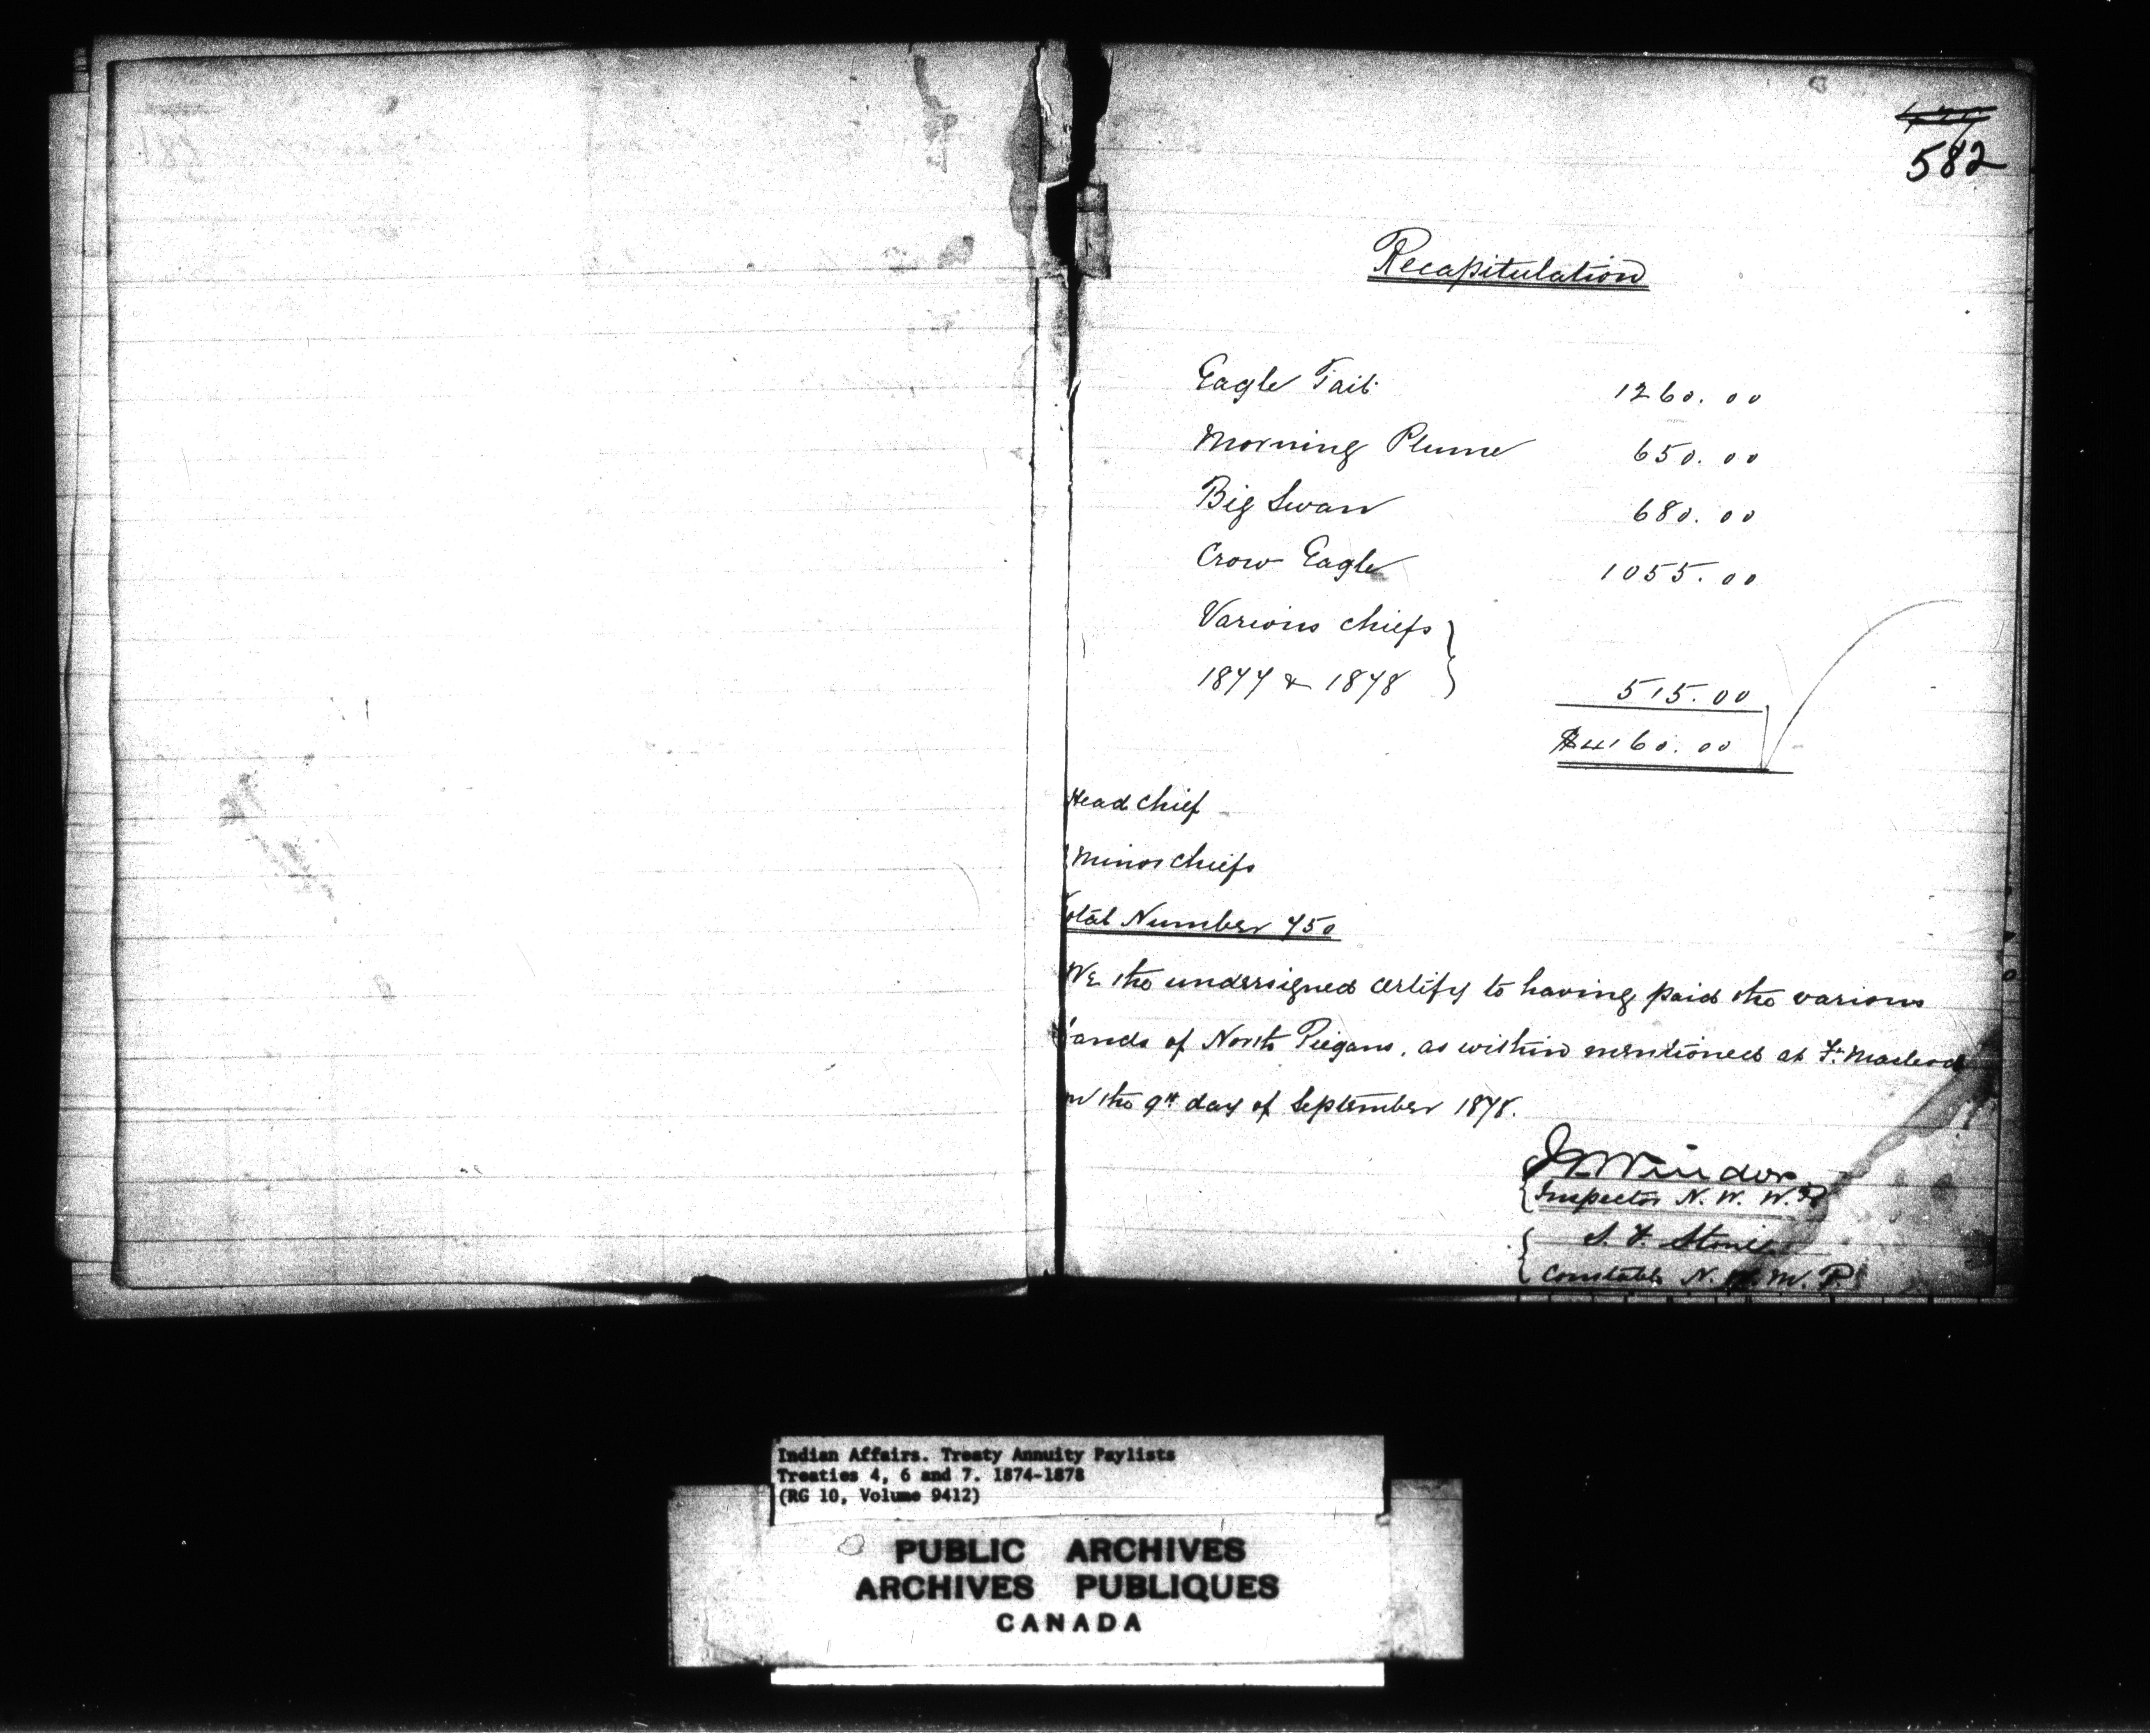 582
Recapitulation
Eagle Tail 1260.00
Morning Plume 650.00
Big Swan 680.00
Crow Eagle 1055.00
Various chiefs
1877 & 1878 515.00
$4160.00
Head chief
Minor chiefs
Total Number 750
We the undersigned certify to having paid the various
bands of North Piegans, as within mentioned at Ft. Macleod
on the 9th day of September 1878.
Winder
Inspector N. W. M. P.
S. F. Stone
Constable N. W. M. P.
Indian Affairs. Treaty Annuity Paylists
Treaties 4, 6 and 7. 1874-1878
(RG 10, Volume 9412)
PUBLIC ARCHIVES
ARCHIVES PUBLIQUES
CANADA